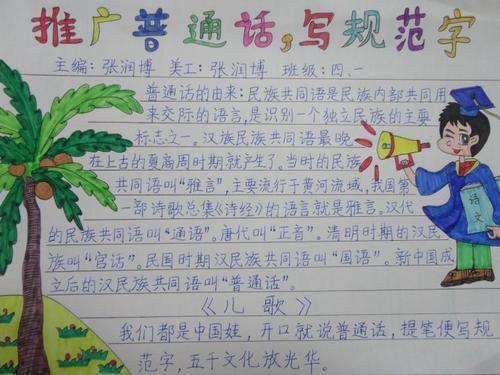 推广普通话，写规范字
主编：张润博 美工：张润博 班级：四、一
普通话的由来：民族共同语是民族内部共同用
来交际的语言，是识别一个独立民族的主要
标志之一。汉族民族共同语最晚
在上古的夏商周时期就产生了。当时的民族
共同语叫“雅言”，主要流行于黄河流域，我国第
一部诗歌总集《诗经》的语言就是雅言。汉代
的民族共同语叫“通语”。唐代叫“正音”。清明时期的汉民
族叫“官话”。民国时期汉民族共同语叫“国语”。新中国成
立后的汉民族共同语叫“普通话”。
《儿歌》
我们都是中国娃，开口就说普通话，提笔便写规
范字，五千文化放光华。
语文